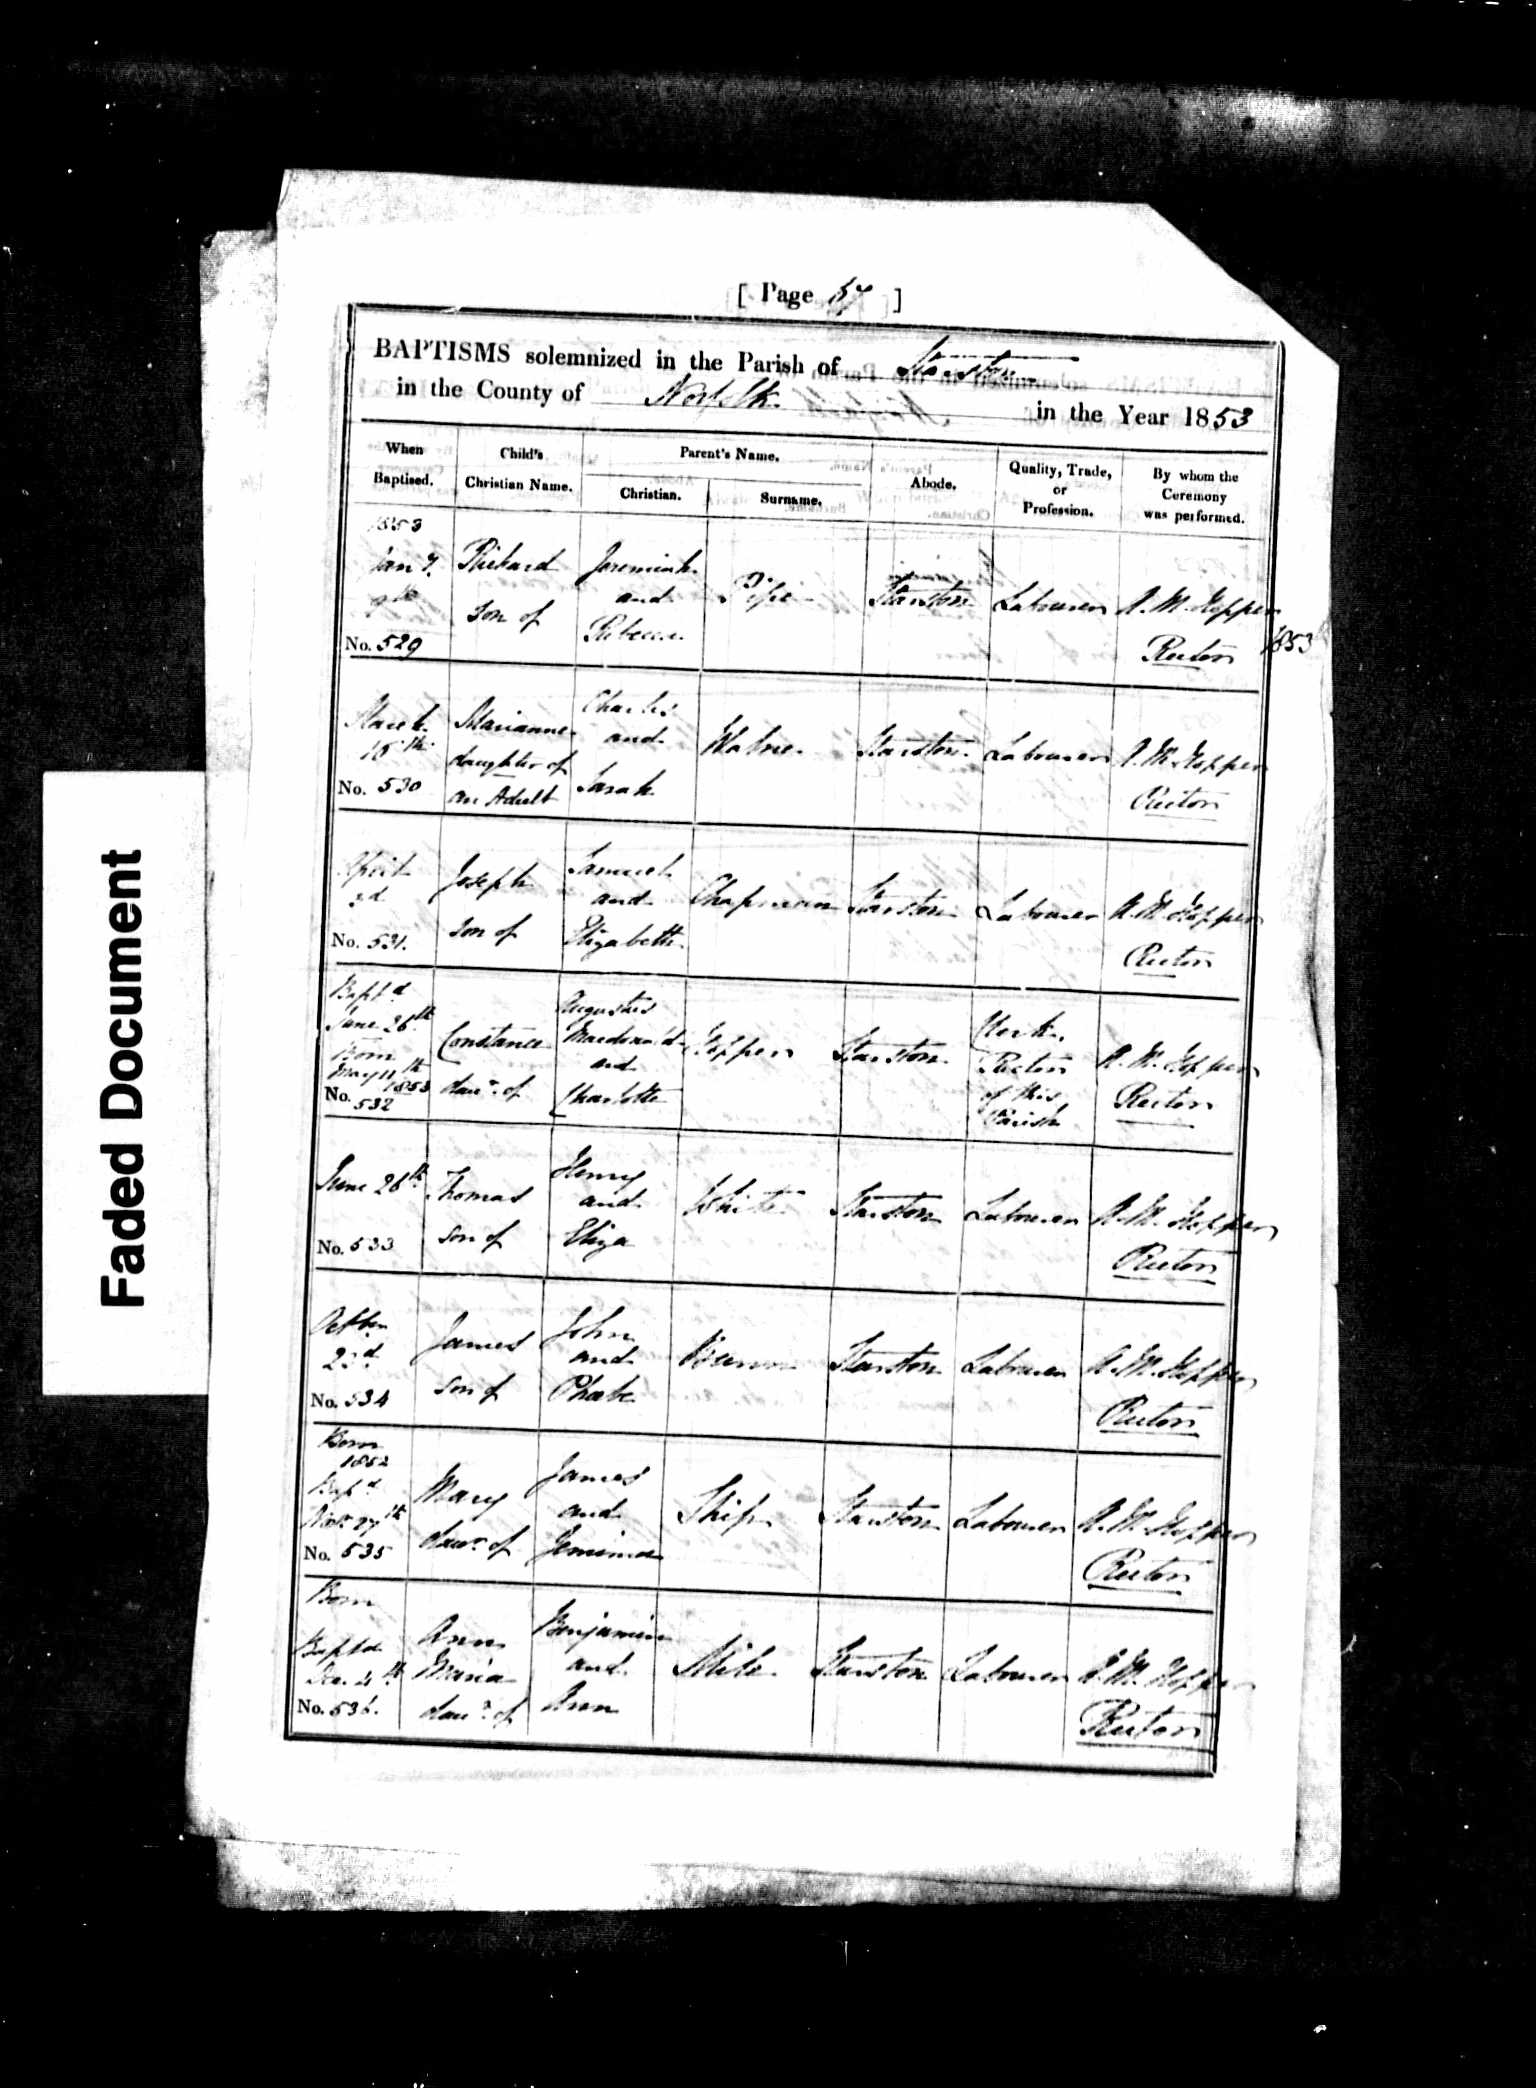 Faded Document
[ Page 67 ]
BAPTISMS solemnized in the Parish of Starston
in the County of Norfolk in the Year 1853
When Baptised. Child's Christian Name. Parent's Name. Christian. Surname. Abode. Quality, Trade, or Profession. By whom the Ceremony was performed.
1853
Jan 9th
No. 529
Richard
son of
Jeremiah
and
Rebecca
Pipe
Starston
Labourer
A. M. Hopper
Rector
1853
March
18th
No. 530
Marianne
daughter of
an Adult
Charles
and
Sarah
Starston
Labourer
A. M. Hopper
Rector
April
3d
No. 531.
Joseph
son of
Samuel
and
Elizabeth
Chapman
Starston
Labourer
A. M. Hopper
Rector
Bapt.d
June 26th
Born
May 11th
1853
No. 532
Constance
daur. of
Augustus
Macdonald
and
Charlotte
Hopper
Starston
Clerk.
Rector
of this
Parish
A. M. Hopper
Rector
June 26th
No. 533
Thomas
son of
Henry
and
Eliza
White
Starston
Labourer
A. M. Hopper
Rector
Octber
23d
No. 534
James
son of
John
and
Phoebe
Starston
Labourer
A. M. Hopper
Rector
Born
1852
Bapd
Novr 27th
No. 535
Mary
daur. of
James
and
Jemima
Ship
Starston
Labourer
A. M. Hopper
Rector
Born
Baptd
Dec. 4th
No. 536.
Ann
Maria
daur. of
Benjamin
and
Ann
Starston
Labourer
A. M. Hopper
Rector